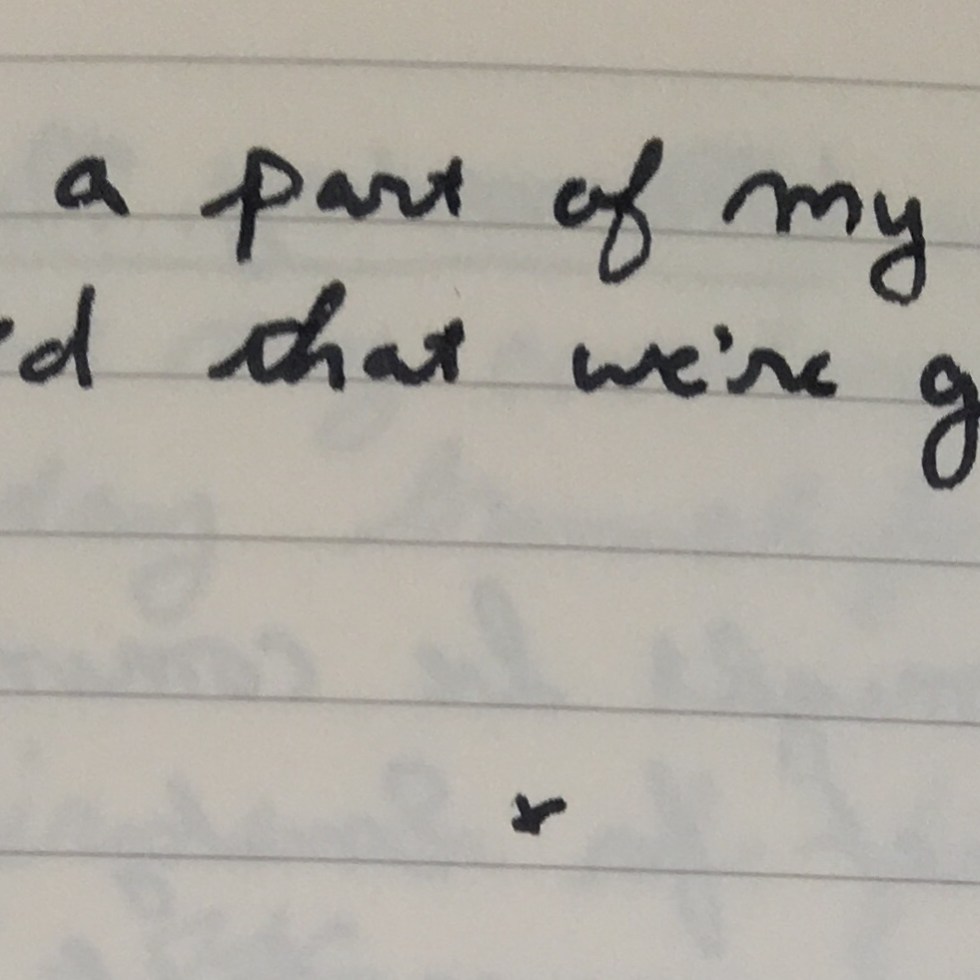 a part of my
d that we're g